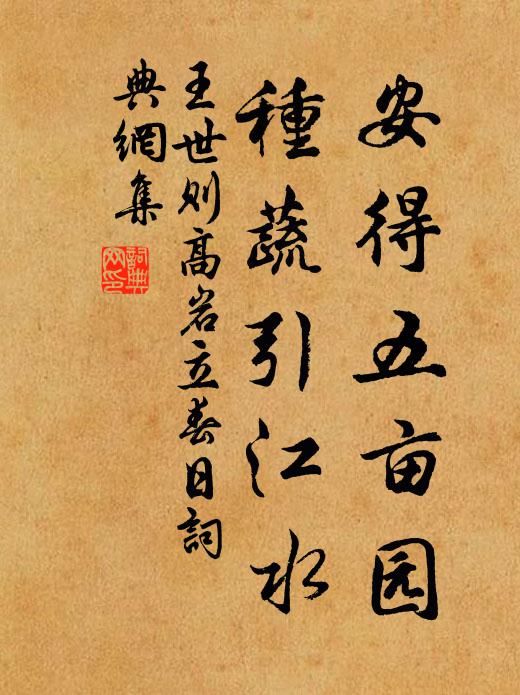 安得五亩园
種蔬引江水
王世则高岩立春日詞
典網集
詞典
网印